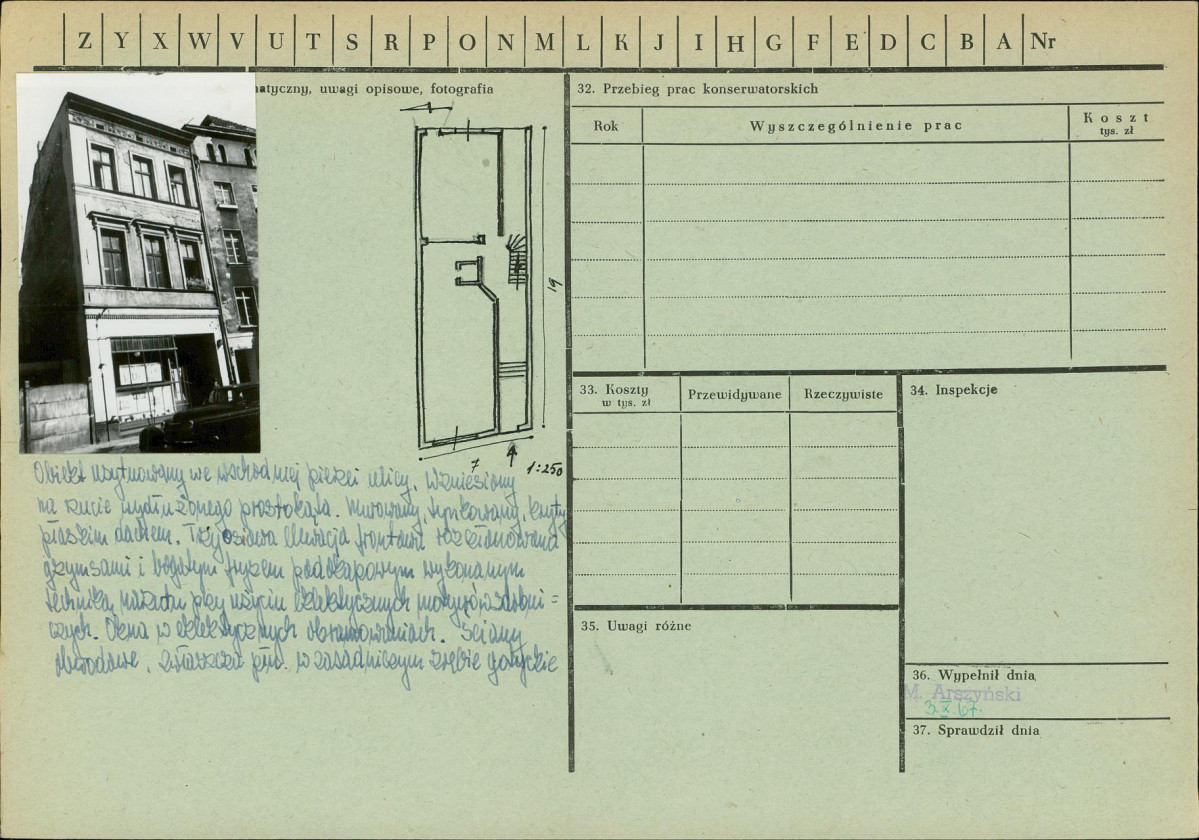 Z Y X W V U T S R P O N M L K J I H G F E D C B A Nr
matyczny, uwagi opisowe, fotografia
19
7
1:250
Obiekt usytuowany we wschodniej pierzei ulicy. Wzniesiony
na rzucie wydłużonego prostokąta. Murowany, tynkowany, kryty
płaskim dachem. Trzyosiowa elewacja frontowa rozczłonkowana
gzymsami i bogatym fryzem podokapowym wykonanym
techniką przy użyciu eklektycznych motywów zdobni=
czych. Okna w eklektycznych obramowaniach. Ściany
obwodowe, zwłaszcza płn. w zasadniczym zrębie gotyckie
32. Przebieg prac konserwatorskich
Rok
Wyszczególnienie prac
Koszt
tys. zł
33. Koszty
w tys. zł
Przewidywane
Rzeczywiste
34. Inspekcje
35. Uwagi różne
36. Wypełnił dnia
M. Arszyński
3.X.67.
37. Sprawdził dnia